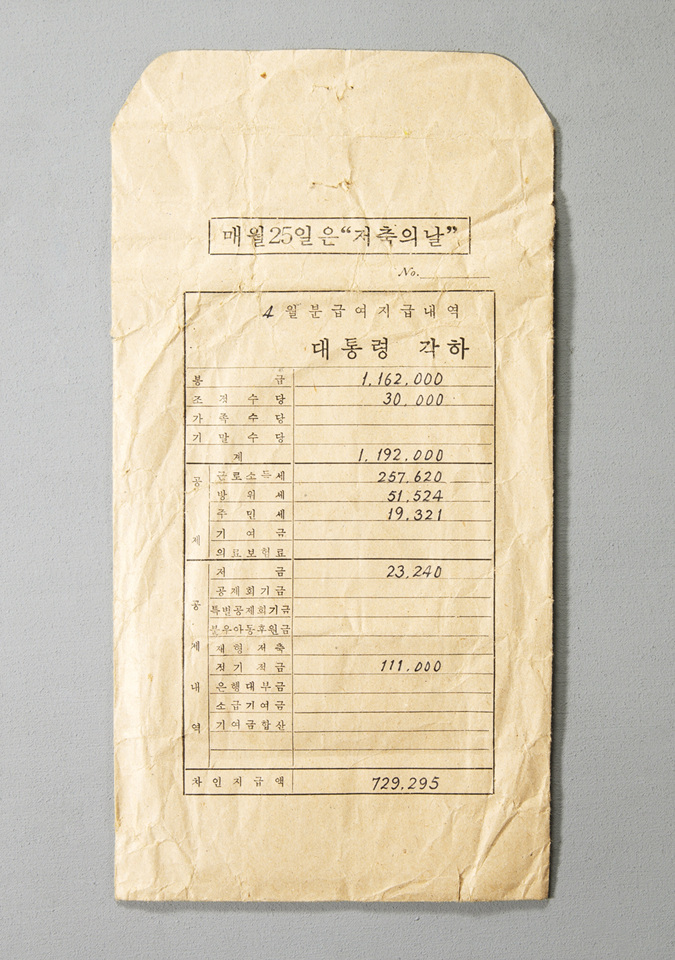 매월25일은“저축의날”
No.
4 월분급여지급내역
대통령 각하
봉 금 1,162,000
조정수당 30,000
가족수당
기말수당
계 1,192,000
공 근로소득세 257,620
방위세 51,524
주민세 19,321
제 기여금
의료보험료
저금 23,240
공제회기금
공 특별공제회기금
불우아동후원금
제 재형저축
정기적금 111,000
내 은행대부금
소급기여금
역 기여금합산
차인지급액 729,295